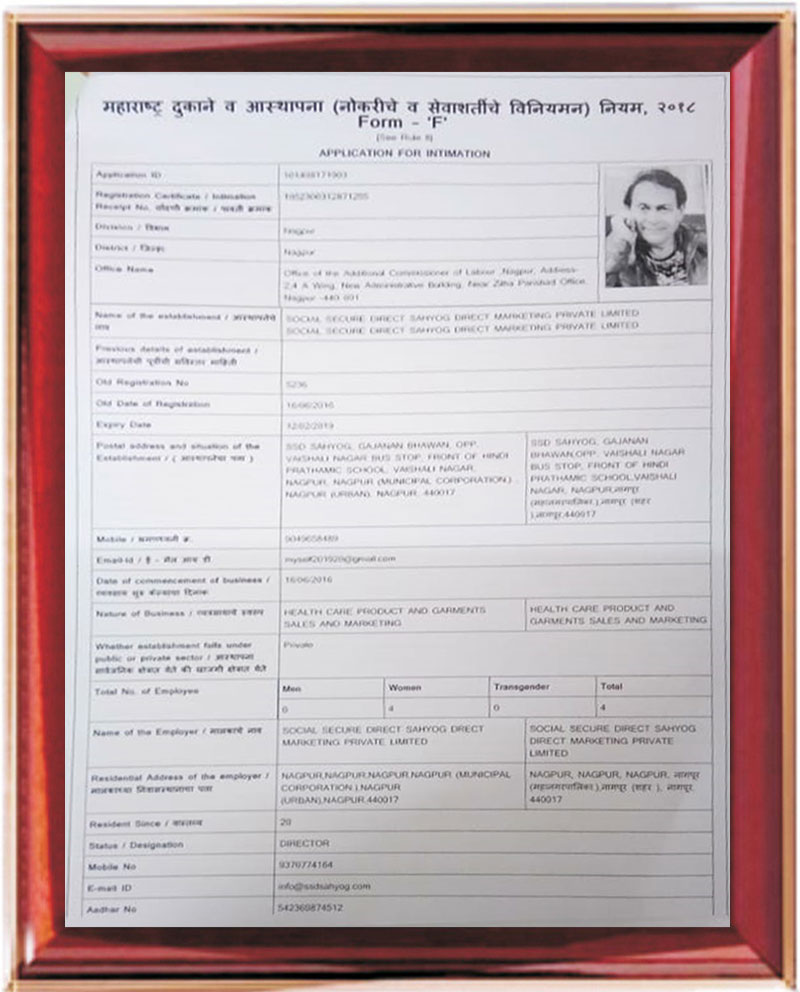 महाराष्ट्र दुकाने व आस्थापना (नोकरीचे व सेवाशर्तीचे विनियमन) नियम, २०१८
Form - 'F'
(See Rule 8)
APPLICATION FOR INTIMATION
Application ID
Registration Certificate / Intimation
Receipt No. नोंदणी क्रमांक / पावती क्रमांक
Division / विभाग Nagpur
District / जिल्हा Nagpur
Office Name Office of the Additional Commissioner of Labour ,Nagpur, Address-
2,4 A Wing, New Administrative Building, Near Zilha Parishad Office,
Nagpur -440 001
Name of the establishment / आस्थापनेचे SOCIAL SECURE DIRECT SAHYOG DIRECT MARKETING PRIVATE LIMITED
नाव SOCIAL SECURE DIRECT SAHYOG DIRECT MARKETING PRIVATE LIMITED
Previous details of establishment /
आस्थापनेची पूर्वीची सविस्तर माहिती
Old Registration No 5236
Old Date of Registration 16/06/2016
Expiry Date 12/02/2019
Postal address and situation of the
Establishment / ( आस्थापनेचा पत्ता )
SSD SAHYOG, GAJANAN BHAWAN, OPP.
VAISHALI NAGAR BUS STOP, FRONT OF HINDI
PRATHAMIC SCHOOL, VAISHALI NAGAR,
NAGPUR, NAGPUR (MUNICIPAL CORPORATION.) -
NAGPUR (URBAN), NAGPUR, 440017
SSD SAHYOG, GAJANAN
BHAWAN,OPP. VAISHALI NAGAR
BUS STOP, FRONT OF HINDI
PRATHAMIC SCHOOL,VAISHALI
NAGAR, NAGPUR,नागपूर
(महानगरपालिका.),नागपूर (शहर
),नागपूर,440017
Mobile / भ्रमणध्वनी क्र. 9049658489
Email-Id / ई - मेल आय डी myself201920@gmail.com
Date of commencement of business / 16/06/2016
व्यवसाय सुरु केल्याचा दिनांक
Nature of Business / व्यवसायाचे स्वरूप
HEALTH CARE PRODUCT AND GARMENTS
SALES AND MARKETING
HEALTH CARE PRODUCT AND
GARMENTS SALES AND MARKETING
Whether establishment falls under Private
public or private sector / आस्थापना
सार्वजनिक क्षेत्रात येते की खाजगी क्षेत्रात येते
Total No. of Employee Men Women Transgender Total
0 4 0 4
Name of the Employer / मालकाचे नाव
SOCIAL SECURE DIRECT SAHYOG DRECT
MARKETING PRIVATE LIMITED
SOCIAL SECURE DIRECT SAHYOG
DIRECT MARKETING PRIVATE
LIMITED
Residential Address of the employer /
मालकाच्या निवासस्थानाचा पत्ता
NAGPUR,NAGPUR,NAGPUR,NAGPUR (MUNICIPAL
CORPORATION.),NAGPUR
(URBAN),NAGPUR,440017
NAGPUR, NAGPUR, NAGPUR, नागपूर
(महानगरपालिका.),नागपूर (शहर ), नागपूर,
440017
Resident Since / वास्तव्य 20
Status / Designation DIRECTOR
Mobile No 9370774164
E-mail ID info@ssdsahyog.com
Aadhar No 542360874512